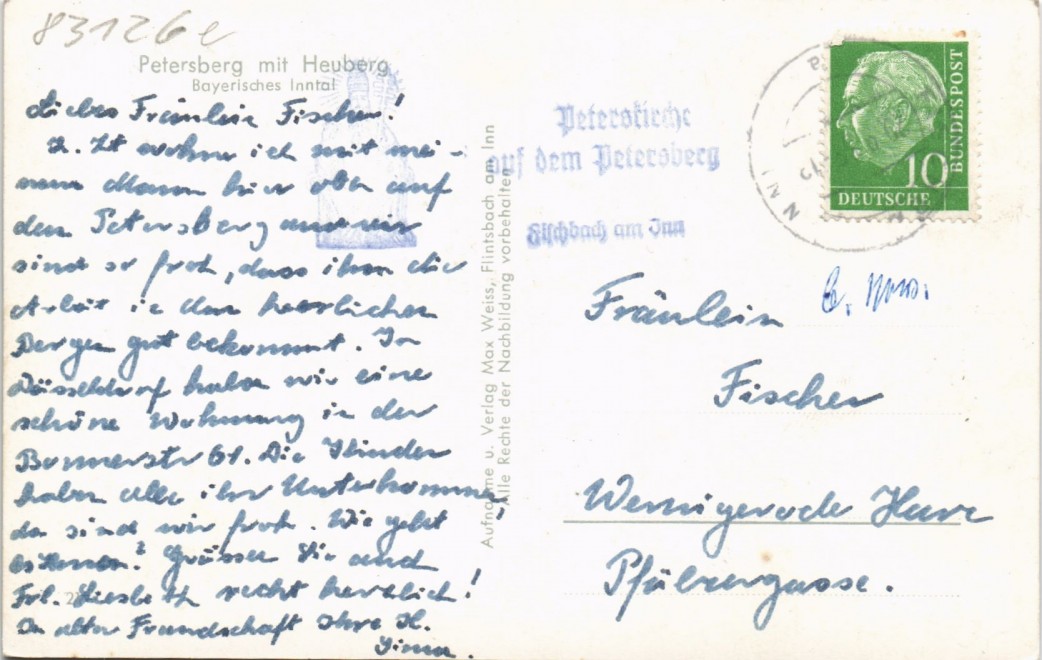 83126e
Petersberg mit Heuberg
Bayerisches Inntal
Liebes Fräulein Fischer!
Z. Zt wohne ich mit mei-
nem Mann hier oben auf
dem Petersberg und wir
sind so froh, dass ihm die
Arbeit in den herrlichen
Bergen gut bekommt. In
Düsseldorf haben wir eine
schöne Wohnung in der
Bonnerstr 61. Die Kinder
haben alle ihr Unterkommen
da sind wir froh. Wie geht
es Ihnen? Grüssen Sie auch
Frl. Liesbeth recht herzlich!
In alter Freundschaft Ihre H.
Aufnahme u. Verlag Max Weiss, Flintsbach am Inn
Alle Rechte der Nachbildung vorbehalten
Peterskirche
auf dem Petersberg
Fischbach am Inn
DEUTSCHE BUNDESPOST
10
INN
Fräulein
Fischer
Wernigerode Harz